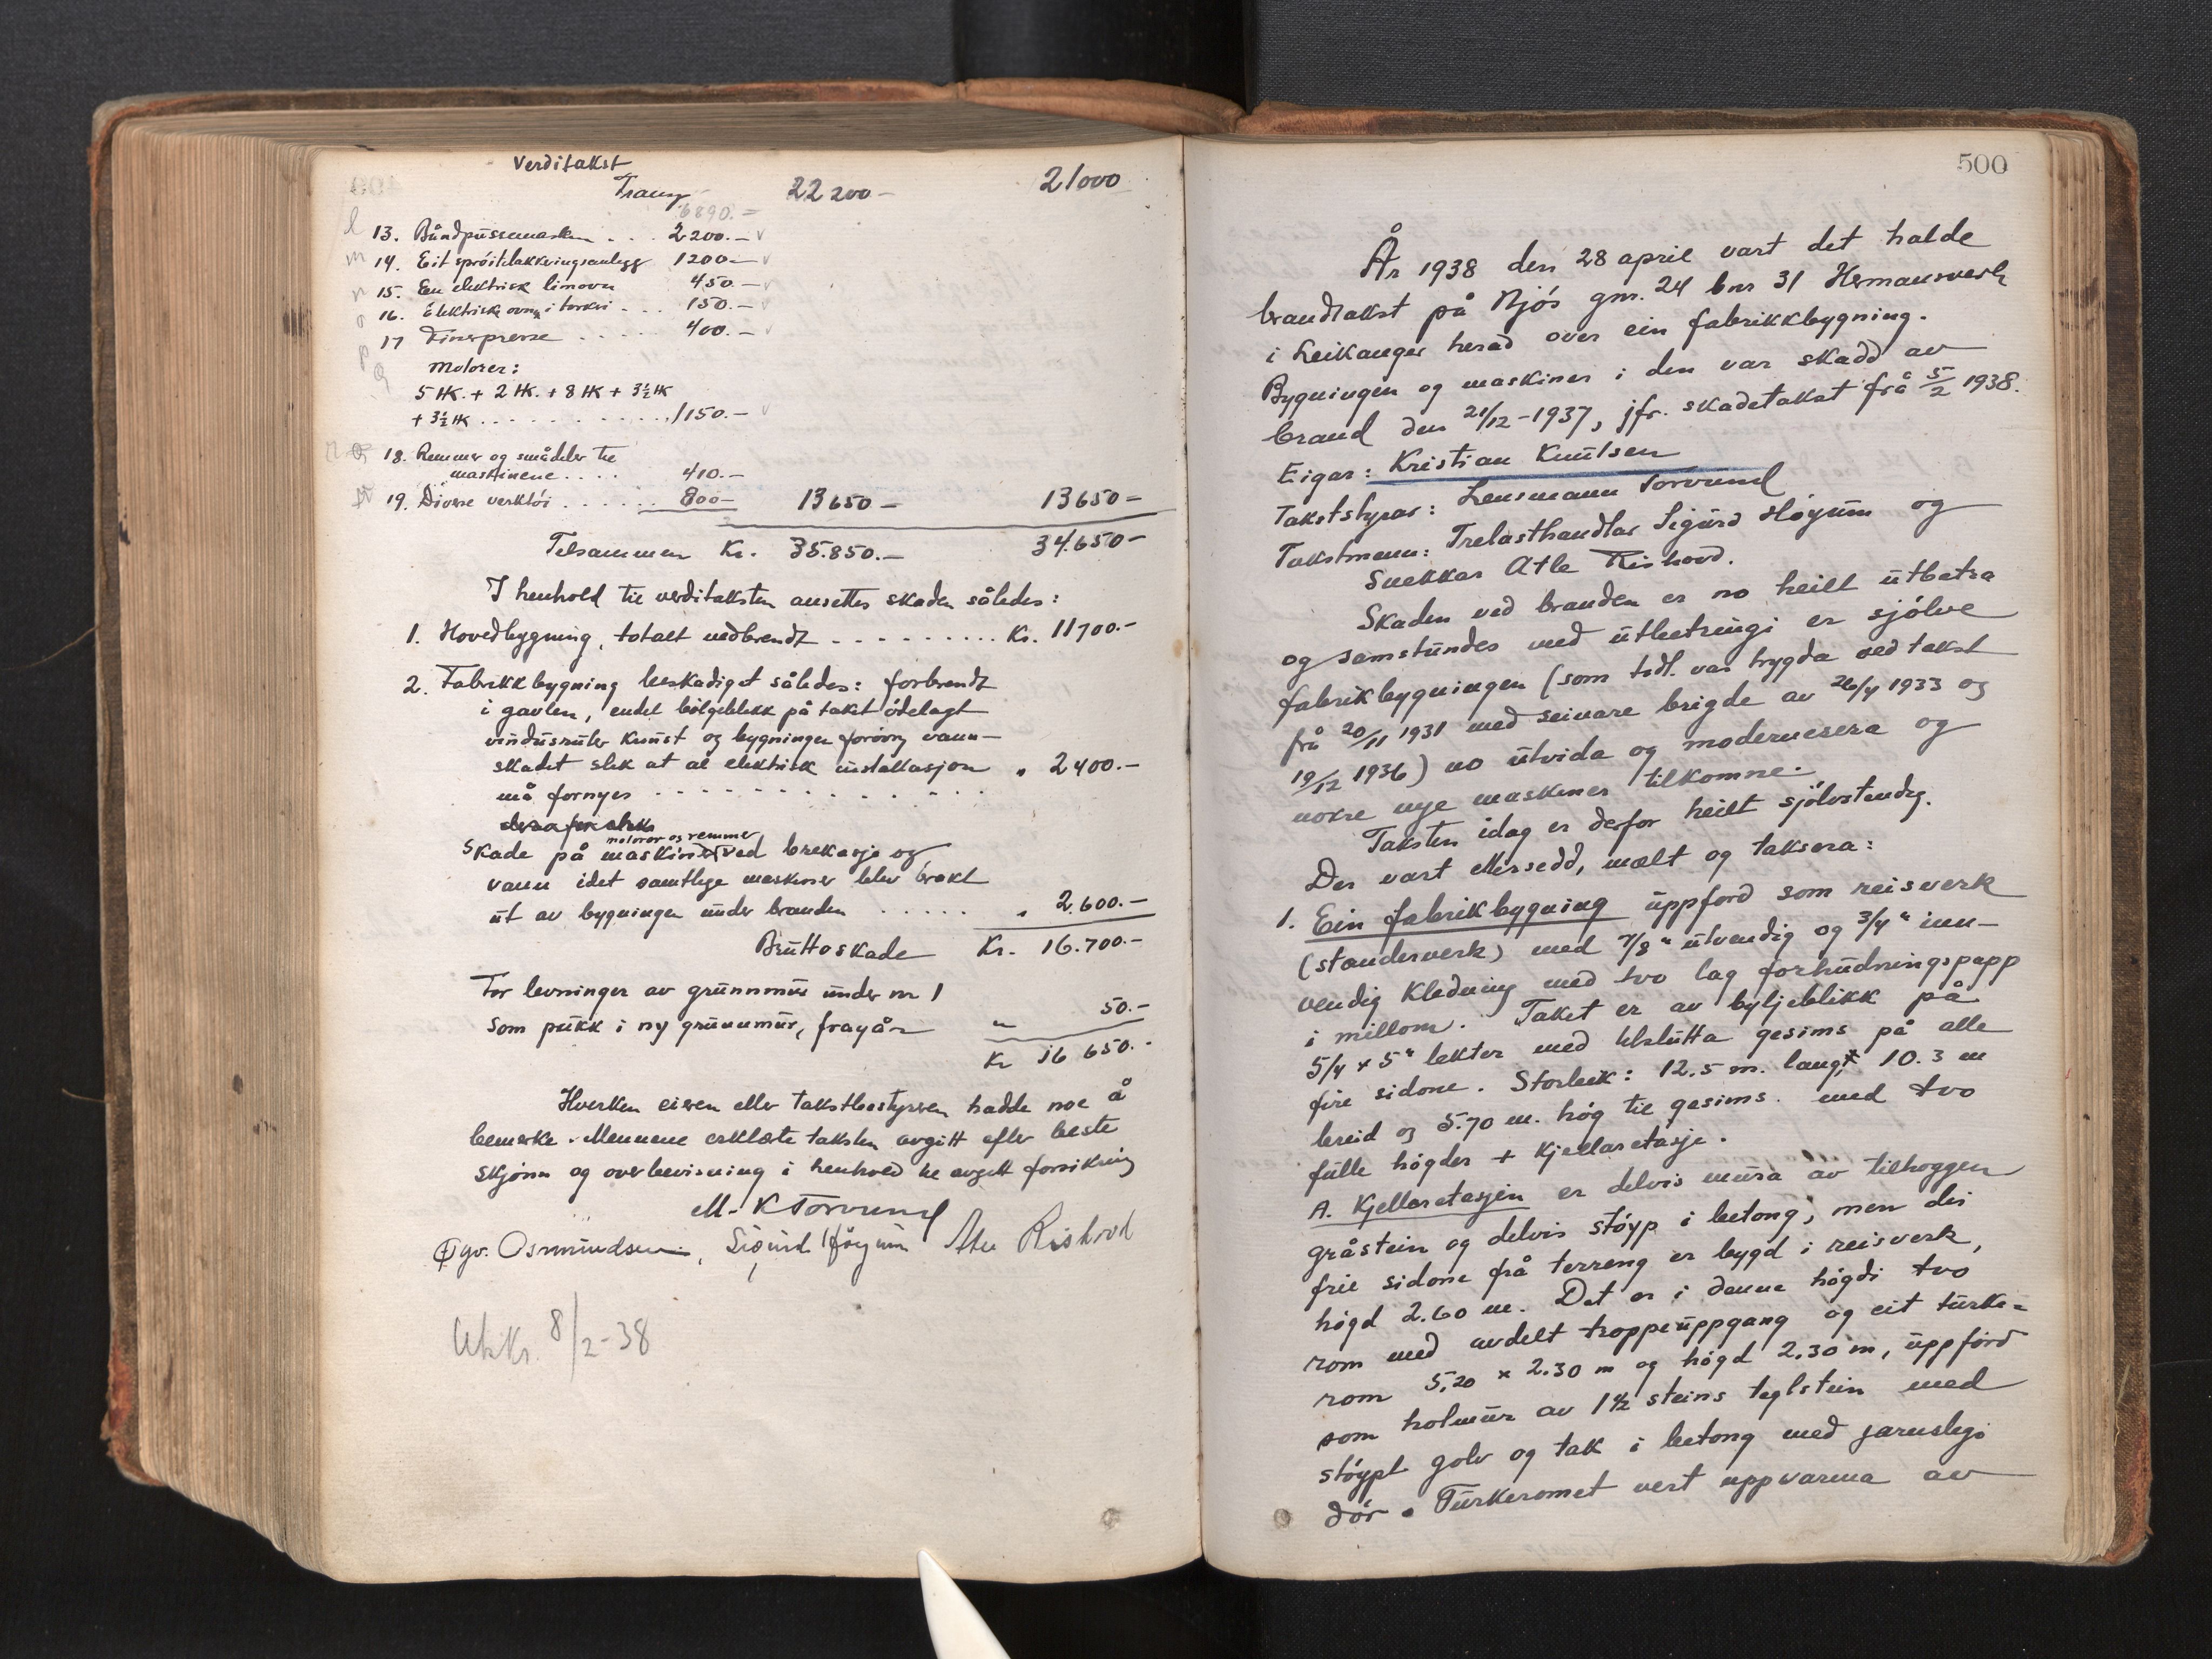 Verditakst
Transp 22200- 21000
6890.-
l 13. Båndpussemaskin . . . 2200.- v
m 14. Eit sprøitelakkeringsanlegg 1200- v
n 15. En elektrisk limovn 450.- v
o 16. Elektrisk ovn i torkri . . . 150.- v
p 17 Finerpresse . . . . . 400.- v
q motorer:
5 HK. + 2 HK. + 8 HK + 3½ HK
+ 3½ HK . . . . . . . . . . . 1150.- v
18. Remmer og smådeler til
maskinene . . . . 410.-
19. Diverse verktøi . . . . . . 800- 13650- 13650-
Tilsammen Kr. 35.850.- 34.650-
I henhold til verditaksten ansettes skaden således:
1. Hovedbygning, totalt nedbrendt . . . . . . . . . Kr. 11700.-
2. Fabrikkbygning beskadiget således: forbrendt
i gavlen, endel bølgeblikk på taket ødelagt
vindusruter knust og bygningen forøvrig vann-
skadet slik at al elektrisk installasjon " 2400.-
må fornyes . . . . . . . . . . . .
motorer og remmer
Skade på maskiner ved brekasje og
vann idet samtlige maskiner blev brakt
ut av bygningen under branden . . . . . " 2.600.-
Bruttoskade Kr. 16.700.-
For levninger av grunnmur under nr 1
som pukk i ny grunnmur, fragår " 50.-
Kr 16 650.-
Hverken eieren eller takstbestyreren hadde noe å
bemerke. Mennene erklærte taksten avgitt efter beste
skjønn og overbevisning i henhold til avgitt forsikring
M. K Torvund
Ygv. Osmundsen, Sigurd Høyum Atle Rishovd
Utskr. 8/2-38
500
År 1938 den 28 april vart det halde
brandtakst på Njøs gnr. 24 bnr 31 Hermansverk
i Leikanger herad over ein fabrikkbygning.
Bygningen og maskiner i den var skadd av
brand den 21/12-1937, jfr. skadetakst frå 5/2 1938.
Eigar: Kristian Knutsen
Takststyrar: Lensmann Torvund
Takstmenn: Trelasthandlar Sigurd Høyum og
Snekkar Atle Rishovd.
Skaden ved branden er no heilt utbetra
og samstundes med utbetringi er sjølve
fabrikbygningen (som tidl. var trygda ved takst
frå 20/11 1931 med seinare brigde av 26/4 1933 og
19/12 1936) no utvida og modernesera og
nokre nye maskiner tilkomne.
Taksten idag er derfor heilt sjølvstendig.
Der vart ettersedd, mælt og taksera:
1. Ein fabrikbygning uppførd som reisverk
(standerverk) med 7/8" utvendig og 3/4" inn-
vendig kledning med tvo lag forhudningspapp
i millom. Taket er av bylgjeblikk på
5/4 x 5" lekter med tilslutta gesims på alle
fire sidone. Storleik: 12.5 m. lang, 10.3 m
breid og 5.70 m. høg til gesims. med tvo
fulle høgder + kjellaretasje.
A. Kjellaretasjen er delvis mura av tilhoggen
gråstein og delvis støyp i betong, men dei
frie sidone frå terreng er bygd i reisverk,
høgd 2.60 m. Det er i denne høgdi tvo
rom med avdelt troppeuppgang og eit turke-
rom 5,20 x 2.30 m og høgd 2.30 m, uppførd
som holmur av 1½ steins teglstein med
støypt golv og tak i betong med jarnslegi
dør. Turkeromet vert uppvarma av